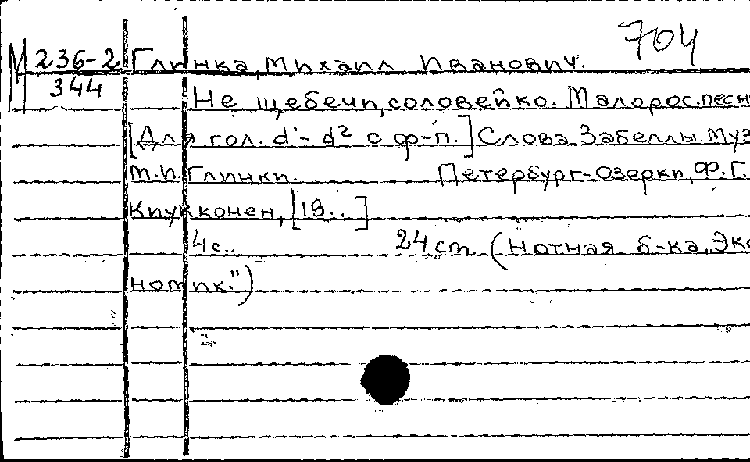 704
М 236-2 Глинка, Михаил Иванович.
344
Не щебечи, соловейко. Малорос. песн
[Для гол. d¹- d² с ф-п.] Слова Забеллы. Муз
М.И. Глинки. Петербург-Озерки, Ф.Г.
Киукконен, [18..]
4с. 24 ст. (Нотная б-ка „Эко
номик.")